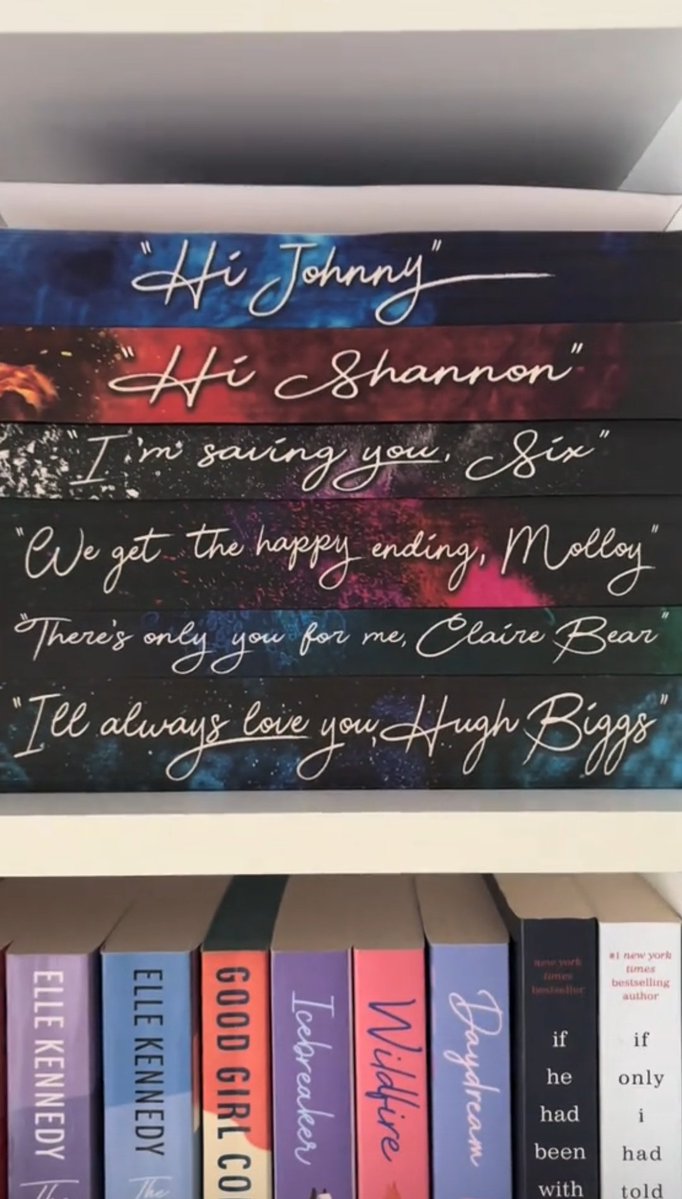 "Hi Johnny"
"Hi Shannon"
"I'm saving you, Six"
"We get the happy ending, Molloy"
"There's only you for me, Claire Bear"
"I'll always love you, Hugh Biggs"
ELLE KENNEDY The
ELLE KENNEDY The
GOOD GIRL CO
Icebreaker
Wildfire
Daydream
new york
times
bestseller
if
he
had
been
with
#1 new york
times
bestselling
author
if
only
i
had
told